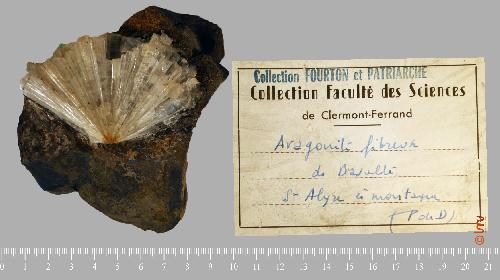 Collection FOURTON et PATRIARCHE
Collection Faculté des Sciences
de Clermont-Ferrand
Aragonite fibreuse
de Basalte
St Alyre ès montagne
(P de D)
0 1 2 3 4 5 6 7 8 9 10 11 12 13 14 15 16 17 18 19 20 21